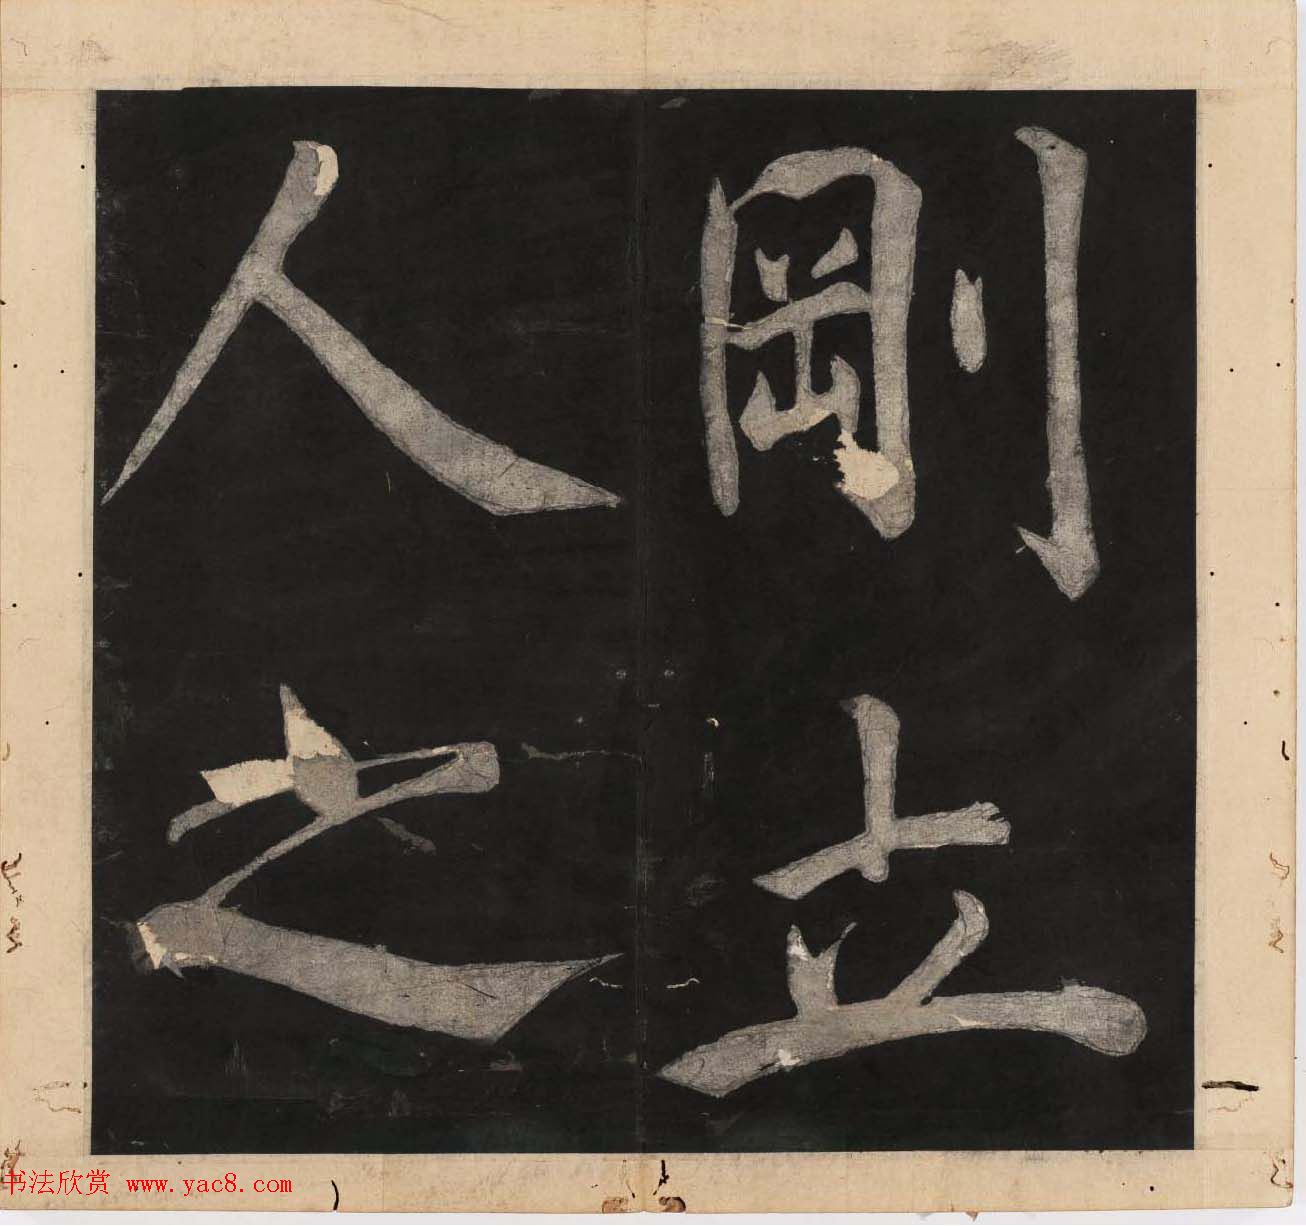 剛立
人之
书法欣赏 www.yac8.com